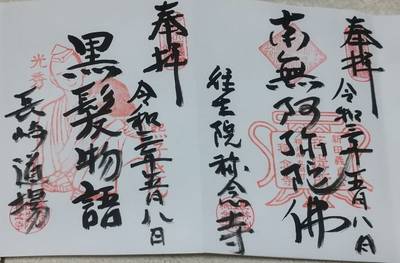 奉拝
令和三年五月八日
南無阿弥陀佛
往生院称念寺
奉拝
令和三年五月八日
黒髪物語
光秀
長崎道場